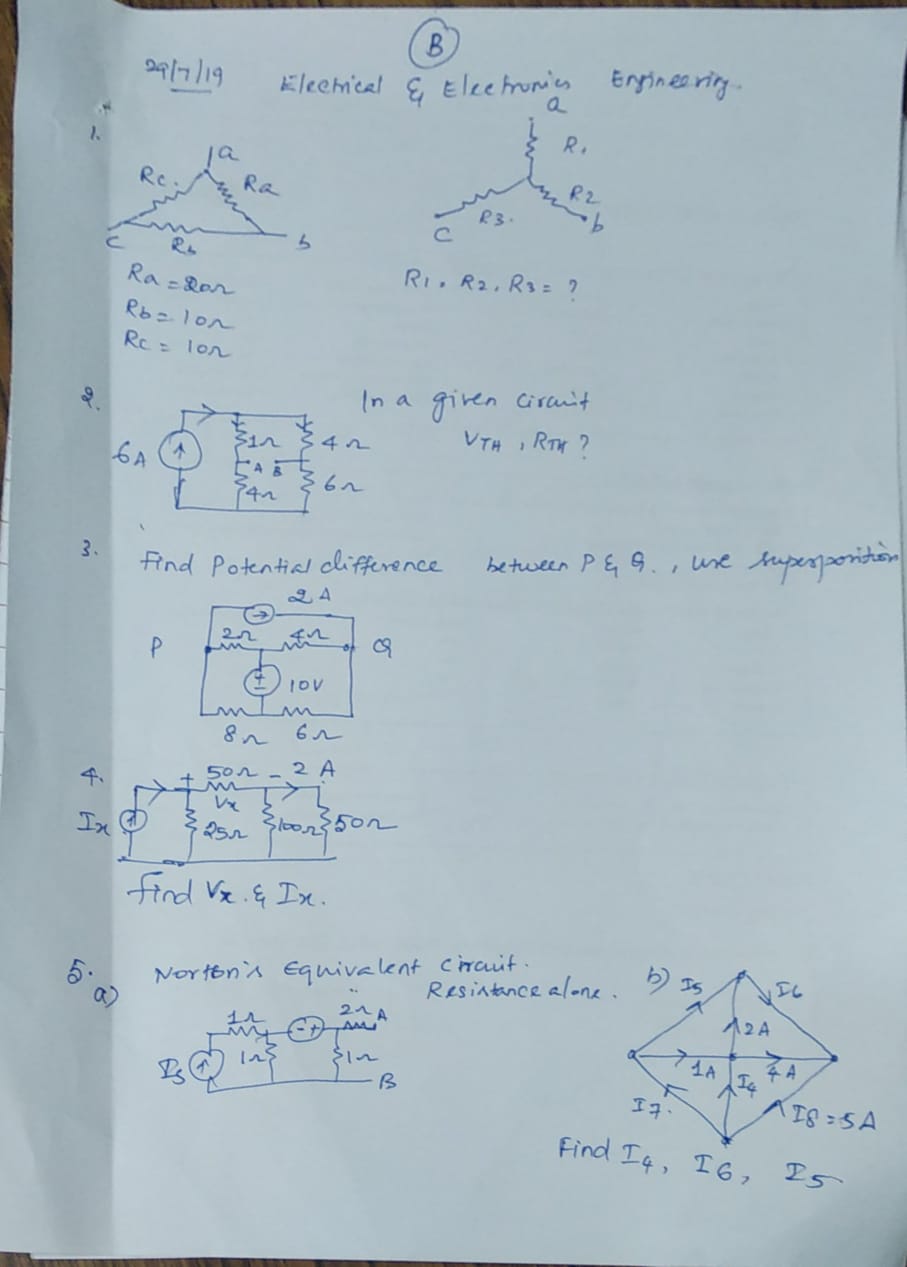 B
29/7/19 Electrical & Electronics Engineering.
1.
a
Rc. Ra
c Rb b
a
R1
R2
R3.
c b
Ra = 20Ω
Rb = 10Ω
Rc = 10Ω
R1, R2, R3 = ?
2.
In a given circuit
VTH, RTH ?
6A 1Ω 4Ω
A B
4Ω 6Ω
3. Find Potential difference between P & Q., use superposition
2 A
P 2Ω 4Ω Q
+ - 10V
8Ω 6Ω
4. + 50Ω - 2 A
Vx
Ix 25Ω 100Ω 50Ω
Find Vx. & Ix.
5.
a) Norton's Equivalent Circuit.
Resistance alone.
1Ω - + 2Ω A
Is 1Ω 1Ω
B
b) I5 I6
2A
1A I4 4A
I7. I8 = 5A
Find I4, I6, I5